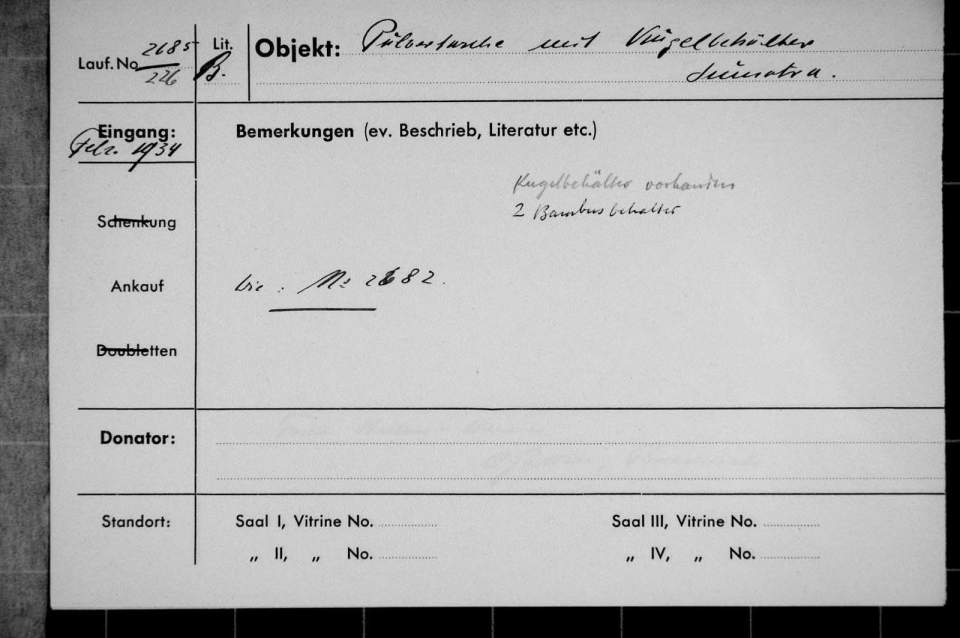 Lauf. No. 2685 / 226 Lit. B. Objekt: Pulvertasche mit Kugelbehälter
Sumatra.
Eingang: Bemerkungen (ev. Beschrieb, Literatur etc.)
Febr. 1934
Kugelbehälter vorhanden
2 Bambusbehälter
Schenkung
Ankauf
No 2682.
Doubletten
Donator:
Standort: Saal I, Vitrine No. Saal III, Vitrine No.
„ II, „ No. „ IV, „ No.